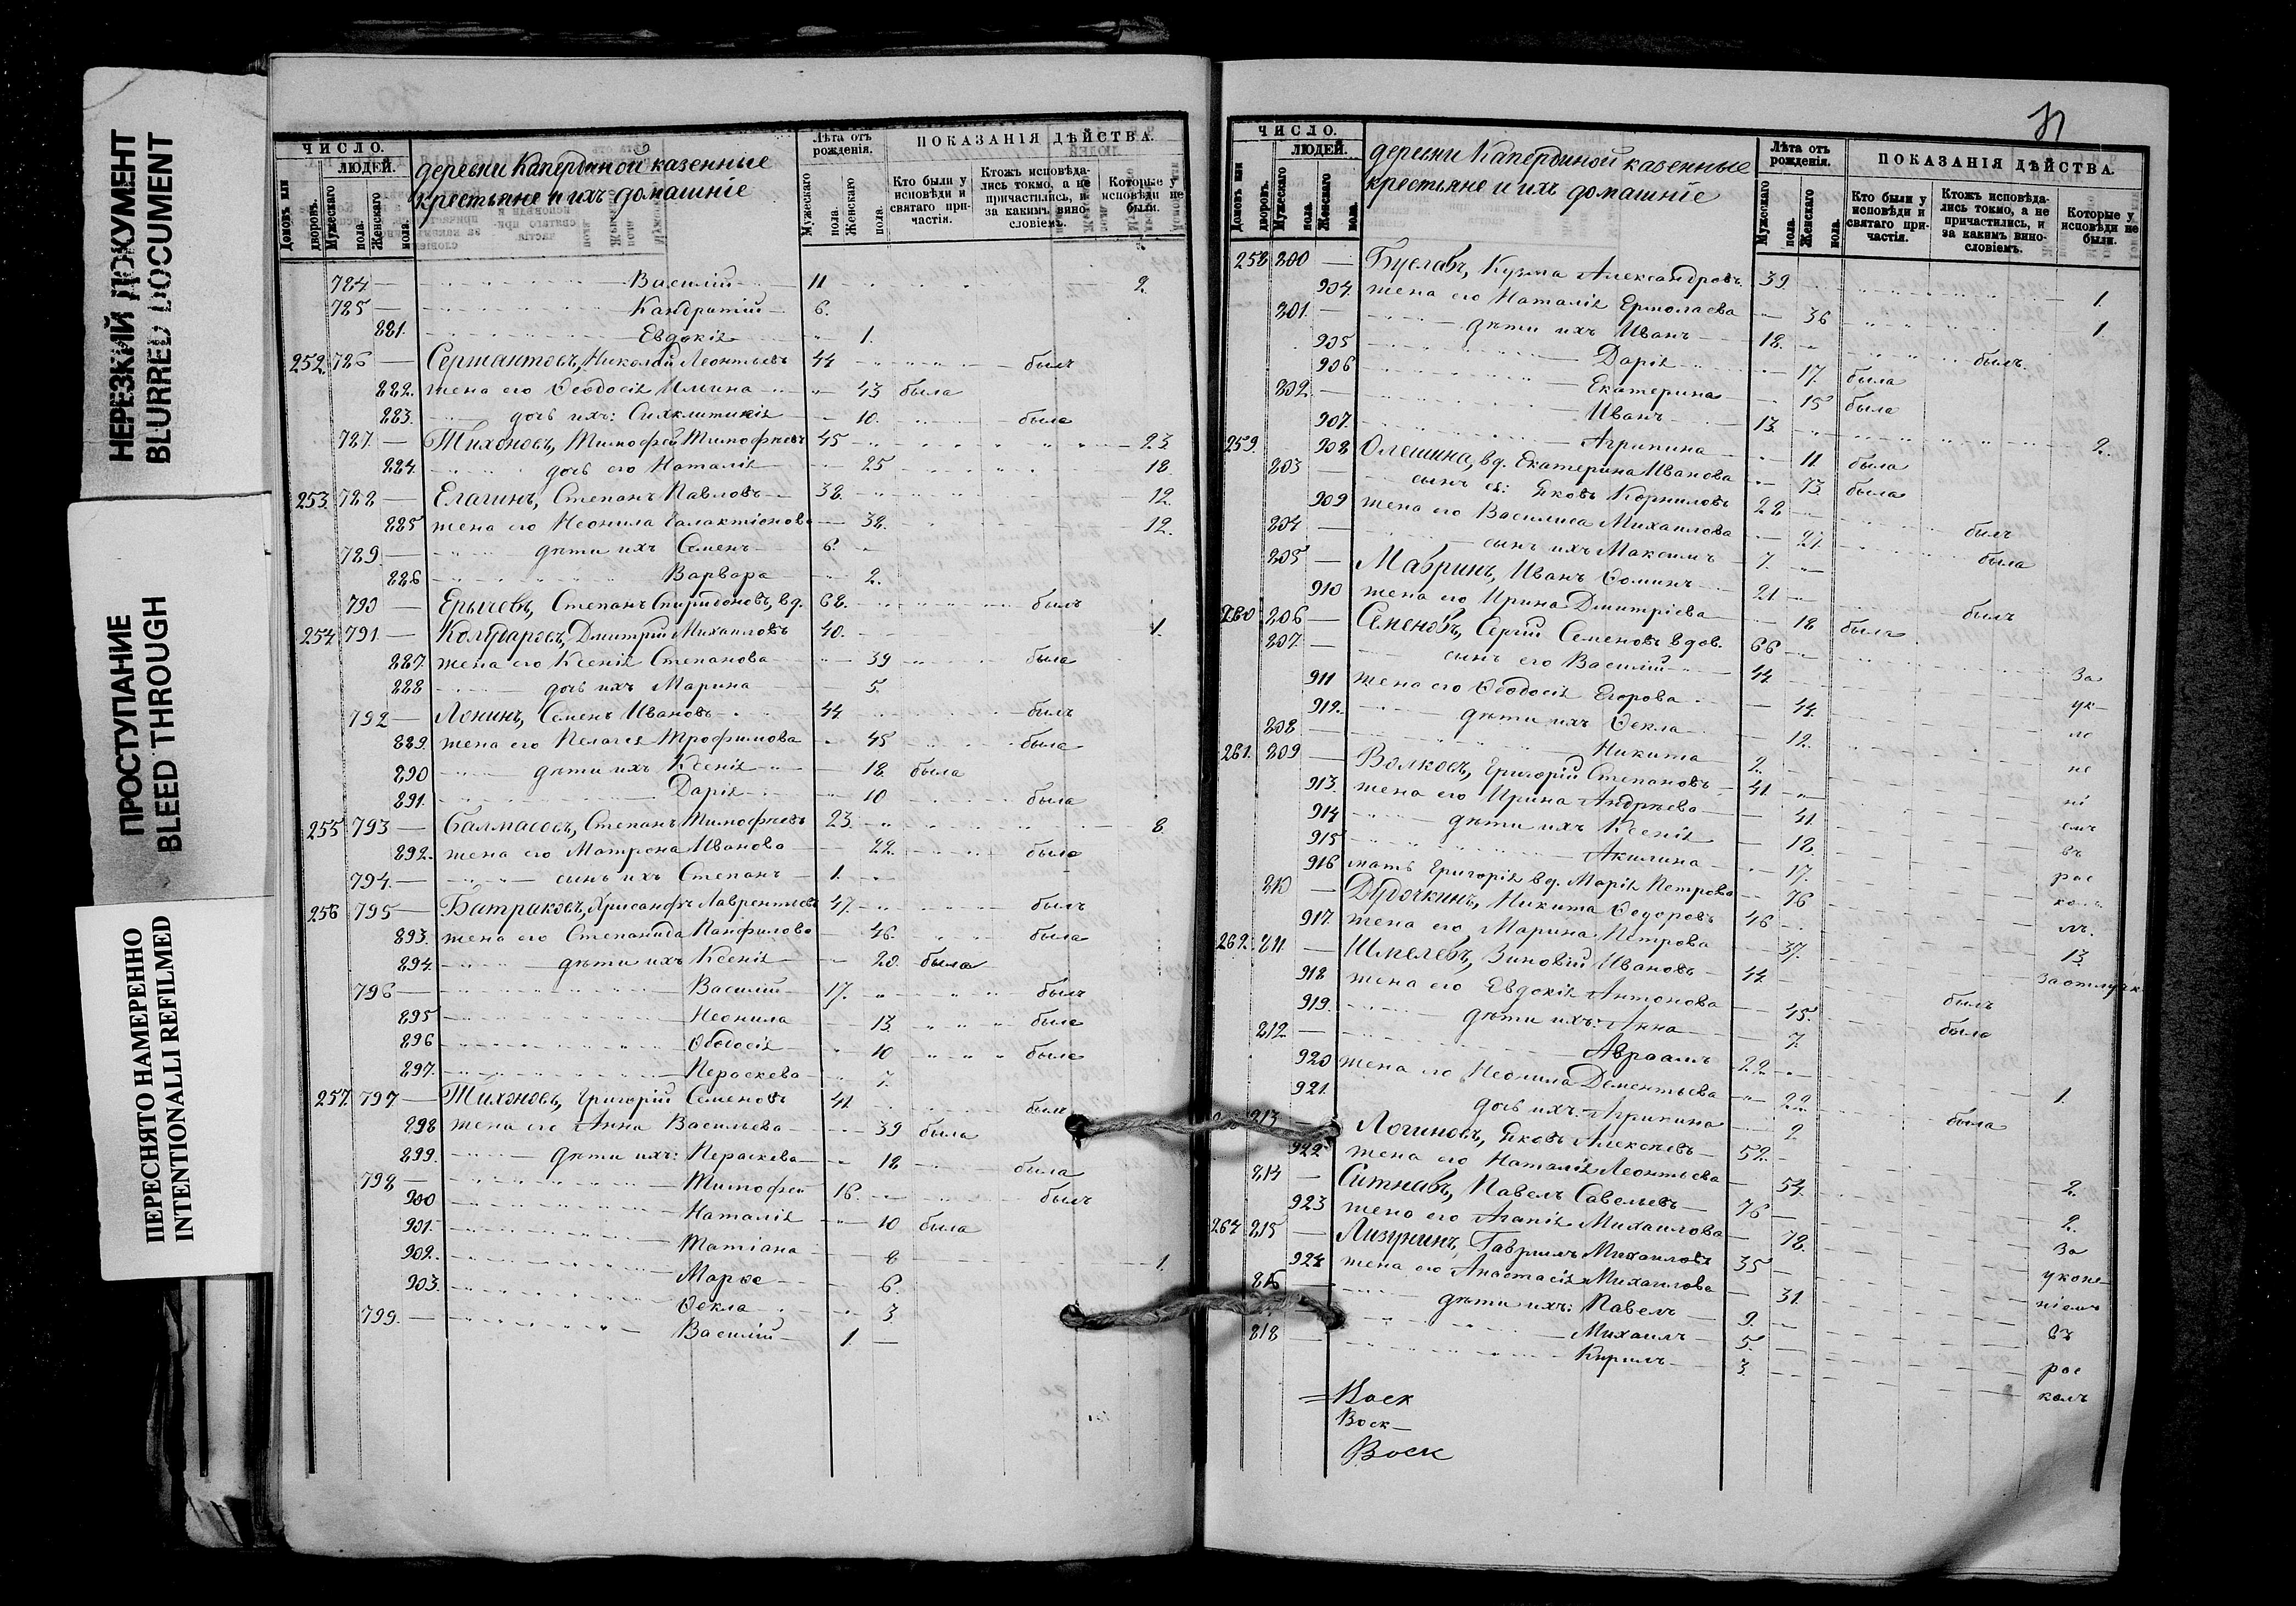 НЕРЕЗКИЙ ДОКУМЕНТ
BLURRED DOCUMENT
ПРОСТУПАНИЕ
BLEED THROUGH
ПЕРЕСНЯТО НАМЕРЕННО
INTENTIONALLI REFILMED
ЧИСЛО.
ЛЮДЕЙ.
Домовъ или дворовъ.
Мужескаго пола.
Женскаго пола.
деревни Капердиной казенные
крестьяне и ихъ домашніе
Лѣта отъ рожденія.
Мужескаго пола.
Женскаго пола.
ПОКАЗАНІЯ ДѢЙСТВА.
Кто были у исповѣди и святаго причастія.
Ктожъ исповѣдались токмо, а не причастились, и за какимъ винословіемъ.
Которые у исповѣди не были.
784 Василій 11 2.
785 Кандратій 6.
881. Евдокія 1.
252. 786 Сержантовъ, Николай Леонтьевъ 44 былъ
882. жена его Ѳеодосія Ильина 43 была
883. дочь ихъ: Синклитикія 10. была
787. Тихоновъ, Тимофей Тимофѣевъ 45 23
884. дочь его Наталія 25 18
253. 788 Елагинъ, Степанъ Павловъ 38. 12.
885 жена его Неонила Галактіонова 38. 12.
789. дѣти ихъ Семенъ 6.
886 Варвара 2.
790 Ерычевъ, Степанъ Спиридоновъ, вд. 68. былъ
254 791. Колударовъ, Дмитрій Михаиловъ 40. 1.
887. жена его Ксенія Степанова 39 была
888 дочь ихъ Марина 5.
792 Ленинъ, Семенъ Ивановъ 44 былъ
889. жена его Пелагея Трофимова 45 была
890 дѣти ихъ Ксенія 18 была
891. Дарія 10 была
255 793 Балмасовъ, Степанъ Тимофѣевъ 23. 8
892. жена его Матрона Иванова 22. была
794. сынъ ихъ Степанъ 1.
256 795 Батраковъ, Хрисанфъ Лаврентьевъ 47. былъ
893. жена его Степанида Панфилова 46. была
894. дѣти ихъ Ксенія 20. была
796 Василій 17. былъ
895 Неонила 13 была
896 Ѳеодосія 10 была
897. Параскева 7.
257. 797 Тихоновъ, Григорій Семеновъ 41 былъ
898 жена его Анна Васильева 39 была
899. дѣти ихъ: Параскева 18 была
798 Тимофей 16. былъ
900 Наталія 10 была
901. Татіана 8 1.
902. Марѳа 6.
903. Ѳекла 3
799. Василій 1.
31
ЧИСЛО.
ЛЮДЕЙ.
Домовъ или дворовъ.
Мужескаго пола.
Женскаго пола.
деревни Капердиной казенные
крестьяне и ихъ домашніе
Лѣта отъ рожденія.
Мужескаго пола.
Женскаго пола.
ПОКАЗАНІЯ ДѢЙСТВА.
Кто были у исповѣди и святаго причастія.
Ктожъ исповѣдались токмо, а не причастились, и за какимъ винословіемъ.
Которые у исповѣди не были.
258 800 Буславъ, Кузма Александровъ 39. 1.
904. жена его Наталія Ермолаева 36 1.
801. дѣти ихъ Иванъ 18. былъ.
905 Дарія 17. была
906 Екатерина 15 была
802. Иванъ 13. 2.
907. Агрипина 11 была
259. 908 Олешина, вд. Екатерина Иванова 73. была
803 сынъ ея: Яковъ Корниловъ 28 былъ
909 жена его Василиса Михаилова 27. была
804 сынъ ихъ Максимъ 7.
805 Мавринъ, Иванъ Ѳоминъ 21 былъ
910 жена его Ирина Дмитріева 18 была
260 806 Семеновъ, Сергій Семеновъ вдов. 66 За
807. сынъ его Василій 44 ук-
911 жена его Ѳеодосія Егорова 44. ло
912. дѣти ихъ Ѳекла 12. не
808 Никита 2. ні
261. 809 Волковъ, Григорій Степановъ 41 емъ
913. жена его Ирина Андрѣева 41. въ
914 дѣти ихъ Ксенія 18. рас
915 Акилина 17. кол
916 мать Григорія вд. Марія Петрова 76 лъ.
810 Дудочкинъ, Никита Ѳедоровъ 46 13.
917. жена его Марина Петрова 37. За отлучк.
262. 811 Шмелевъ, Зиновій Ивановъ 44 былъ
918 жена его Евдокія Антонова 45. была
919. дѣти ихъ: Анна 7.
812. Авраамъ 22. 1.
920 жена его Неонила Дементьева 22. была
921. дочь ихъ: Агрипина 2
813 Логиновъ, Яковъ Алексѣевъ 52. 2.
922 жена его Наталія Леонтьева 54. 2.
814 Ситнавъ, Павелъ Савельевъ 76 За
923 жена его Агапія Михаилова 78. уклоне
264 815 Лизунинъ, Гавриилъ Михаиловъ 35 ніемъ
924 жена его Анастасія Михаилова 31. въ
816 дѣти ихъ: Павелъ 9. рас
Михаилъ 5. колъ
818 Кирилъ 3.
Воск
Воск
Воск